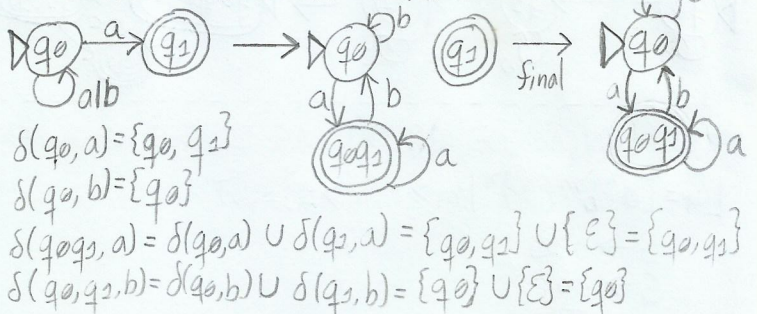 q0 a q1 q0 b q1 final q0
a|b a b a b
q0q1 a q0q1 a
δ(q0, a) = {q0, q1}
δ(q0, b) = {q0}
δ(q0q1, a) = δ(q0,a) ∪ δ(q1,a) = {q0,q1} ∪ {ε} = {q0,q1}
δ(q0,q1,b) = δ(q0,b) ∪ δ(q1,b) = {q0} ∪ {ε} = {q0}